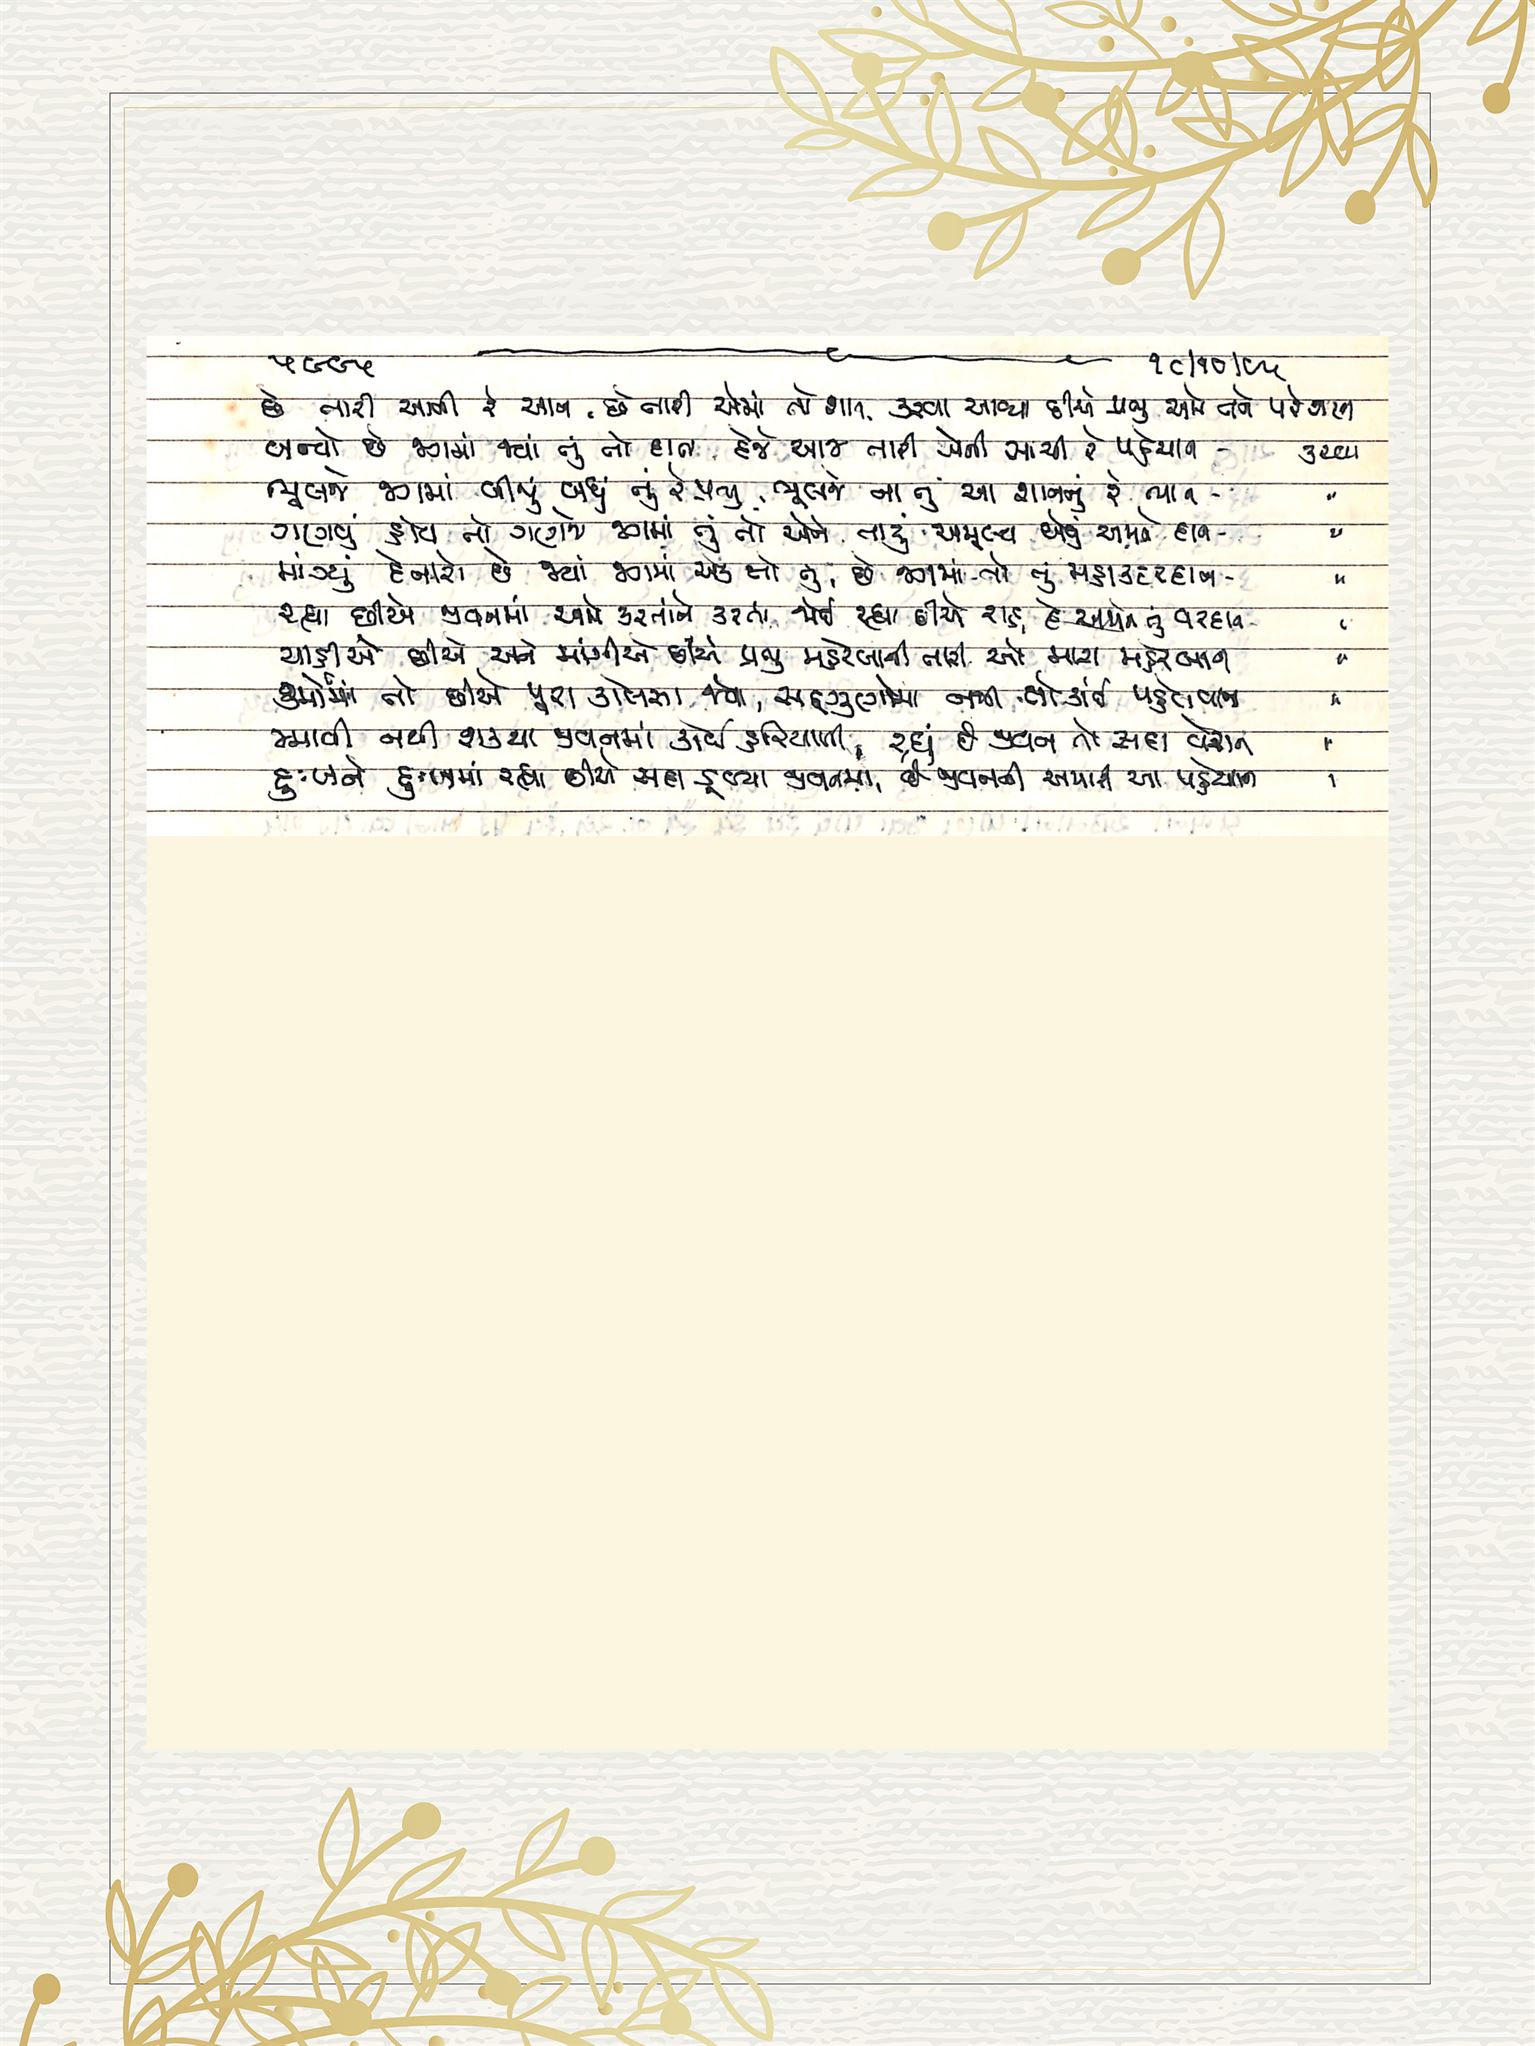 ૫૯૯૫ ૧૮/૧૦/૯૫
છે તારી આની રે આન, છે તારી એમાં તો શાન, કરવા આવ્યા છીએ પ્રભુ અમે તને પરેશાન
બન્યો છે જગમાં જ્યાં તું તો દાન, દેજે આજ તારી એની સાચી રે પહેચાન - કરવા
ભૂલજે જગમાં બીજું બધું તું રે પ્રભુ, ભૂલજે ના તું આ શાનનું રે ભાન - "
ગણવું હોય તો ગણજે જગમાં તું તો એને, તારું અમૂલ્ય એવું અમને દાન - "
માંગ્યું દેનારો છે જ્યાં જગમાં એક તો તું, છે જગમાં તો તું મહાકદરદાન - "
રહ્યા છીએ જીવનમાં અમે કરતાંને કરતા, જોઈ રહ્યા છીએ રાહ, દે અમને તું વરદાન - "
ચાહીએ છીએ અને માંગીએ છીએ પ્રભુ મહેરબાની તારી ઓ મારા મહેરબાન "
કર્મોમાં તો છીએ પૂરા કાચા, સદ્ગુણોમાં નથી તો કાંઈ પહેલવાન "
લાવી નથી શક્યા જીવનમાં કોઈ હરિયાળી, રહ્યું છે જીવન તો સદા વેરાન "
દુઃખને દુઃખમાં રહ્યા છીએ સદા ડૂબ્યા જીવનમાં, છે જીવનની અમારી આ પહેચાન "